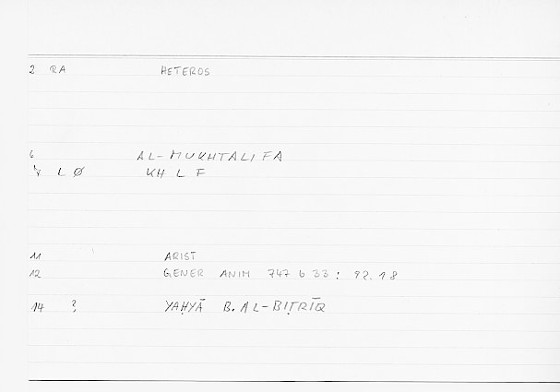 2 RA HETEROS
6 AL-MUKHTALIFA
L Ø KH L F
11 ARIST
12 GENER ANIM 747 b 33 : 92.18
14 ? YAḤYĀ B. AL-BIṬRĪQ